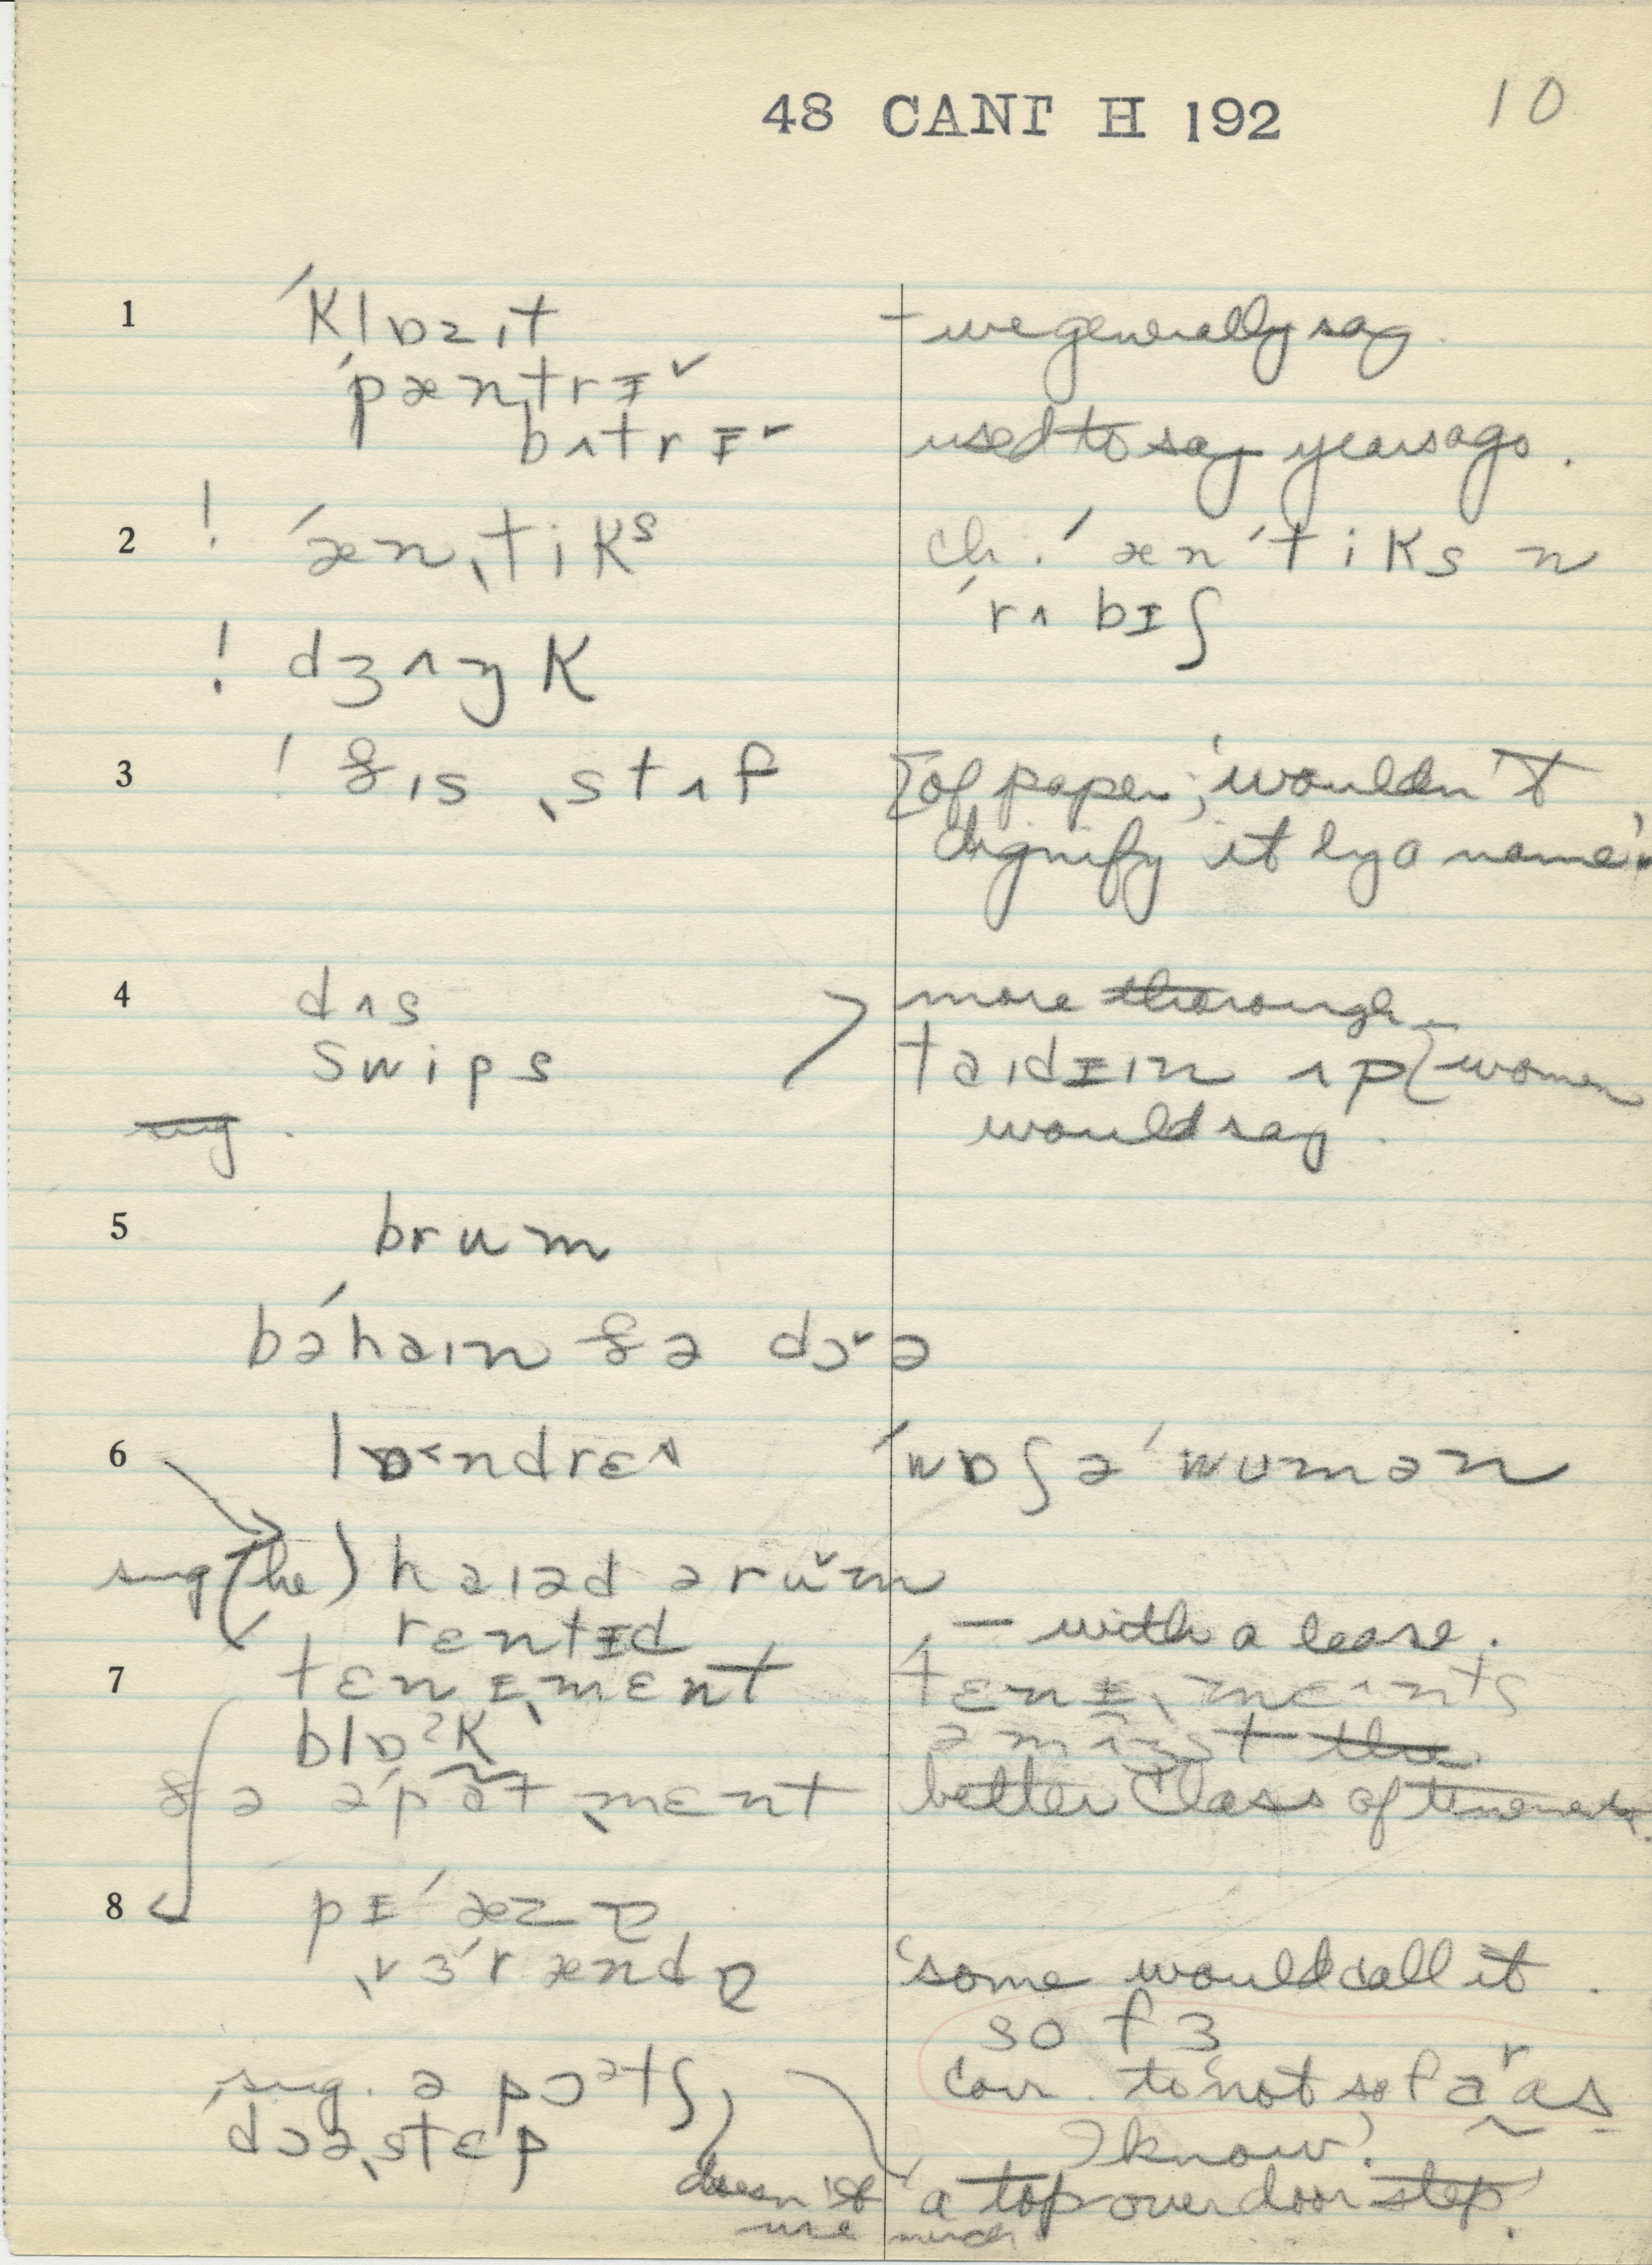 48 CANT H 192 10
1 ˈklɒzɪt – we generally say
ˈpæntrɪˇ
bʌtrɪˇ used to say years ago.
2 ! ˈænˌtikˢ ch. ! ˈænˈtiks n
ˈrʌbɪʃ
! dʒʌŋk
3 ! ðɪs ˌstʌf [of paper; 'wouldn't
dignify it by a name'.
4 dʌs more thorough
swips taɪdɪɪn ʌp [women
sug. would say.
5 brum
bəˈhaɪn ðə dɔˇə
6 lɒ˂ndrɛs ˈwɒʃə ˈwumən
sug (he) haɪəd ə ruˇm
rentɪd – with a lease.
7 ˈtɛnɪˌmɛnt ˈtɛnɪˌmɛnts
blɒˀk əmʌŋst the
ðə əˈpatˌmɛnt better class of tenements.
8 pɪˈæzɐ
ˌvɜˈrændɐ 'some would call it.
so fɜ
sug. ə pɔətʃ, corr. to 'not so faʳ as
ˈdɔəˌstɛp I know'.
doesn't 'a top over doorstep'.
use much